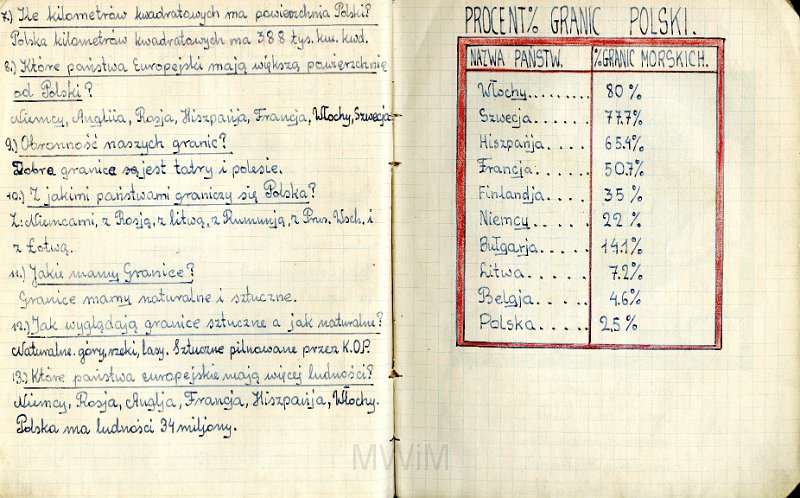 7.) Ile kilometrów kwadratowych ma powierzchnia Polski?
Polska kilometrów kwadratowych ma 388 tys. kw. kwd.
8.) Które państwa Europejski mają większą powierzchnię
od Polski?
Niemcy, Angliia, Rosja, Hiszpańja, Francja, Włochy, Szwecja
9.) Obronność naszych granic?
Dobre granice są jest tatry i polesie.
10.) Z jakimi państwami graniczy się Polska?
Z: Niemcami, z Rosją, z litwą, z Rumunją, z Prus. Wsch. i
z Łotwą.
11.) Jakie mamy Granice?
Granice mamy naturalne i sztuczne.
12.) Jak wyglądają granice sztuczne a jak naturalne?
Naturalne. góry, rzeki, lasy. Sztuczne pilnowane przez K.O.P.
13.) Które państwa europejskie mają więcej ludności?
Niemcy, Rosja, Anglja, Francja, Hiszpańja, Włochy.
Polska ma ludności 34 miljony.
PROCENT% GRANIC POLSKI.
NAZWA PAŃSTW. % GRANIC MORSKICH.
Włochy......... 80%
Szwecja...... 77.7%
Hiszpańja.... 65.4%
Francja...... 50.7%
Finlandja.... 35%
Niemcy..... 22%
Bułgarja..... 14.1%
Litwa..... 7.2%
Belgja..... 4.6%
Polska..... 2,5%
MWiM